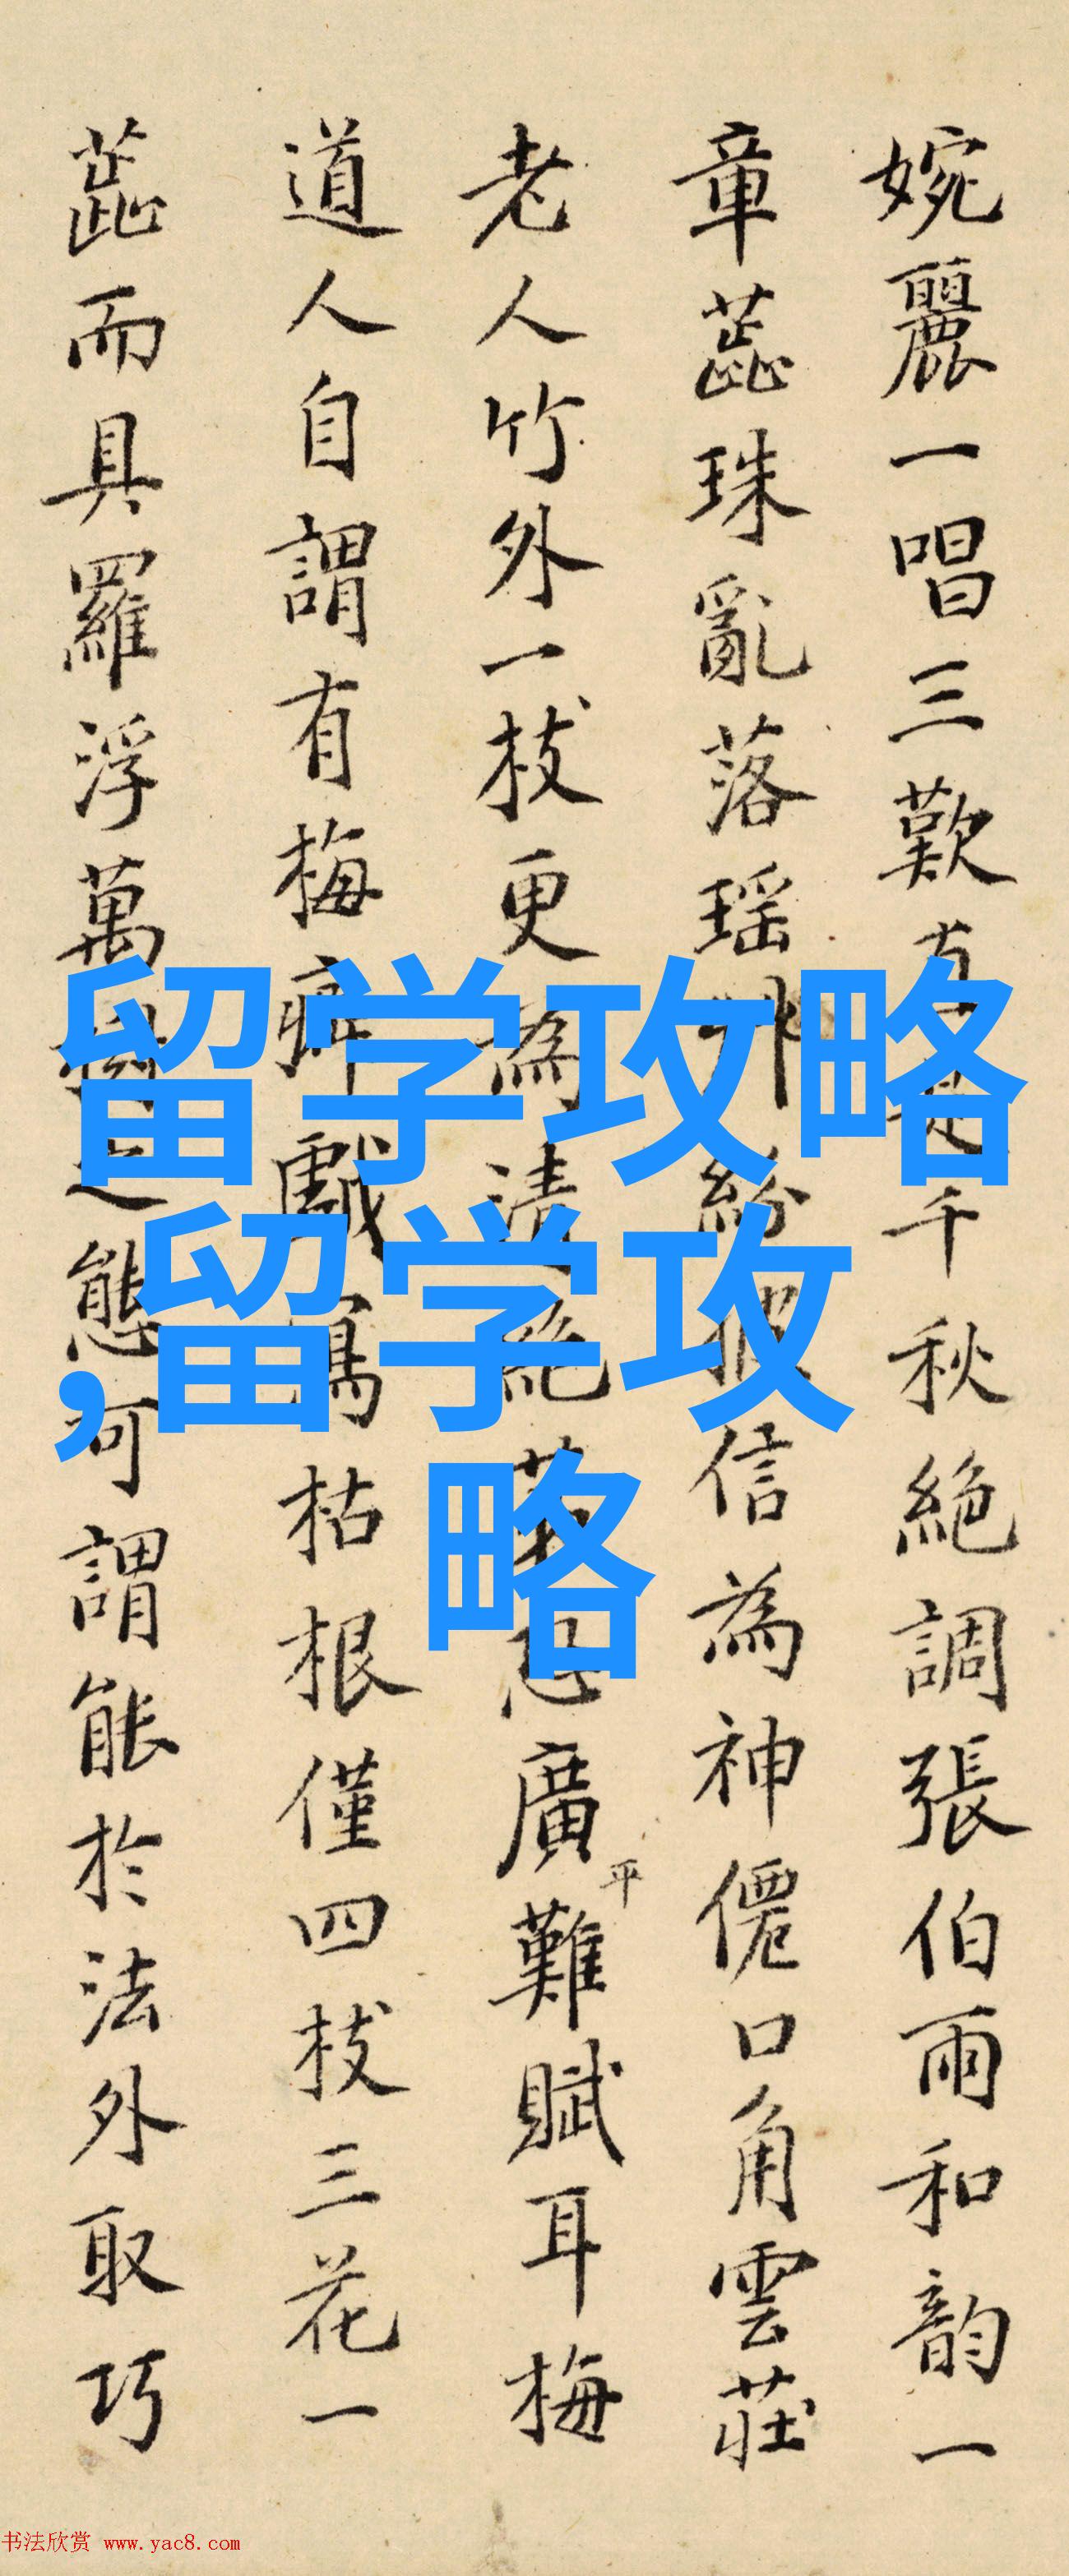 婉麗一唱三歎真是千秋絶調張伯雨和韵一
章蕋珠亂落瑶 紛披信為神僊口角雲莊
老人竹外一枝更為清絶 廣平難賦耳梅
道人自謂有梅癖戲寫枯根僅四枝三花一
蕋而具羅浮萬樹之態可謂能於法外取巧
留学攻略
,留学攻
略
书法欣赏 www.yac8.com